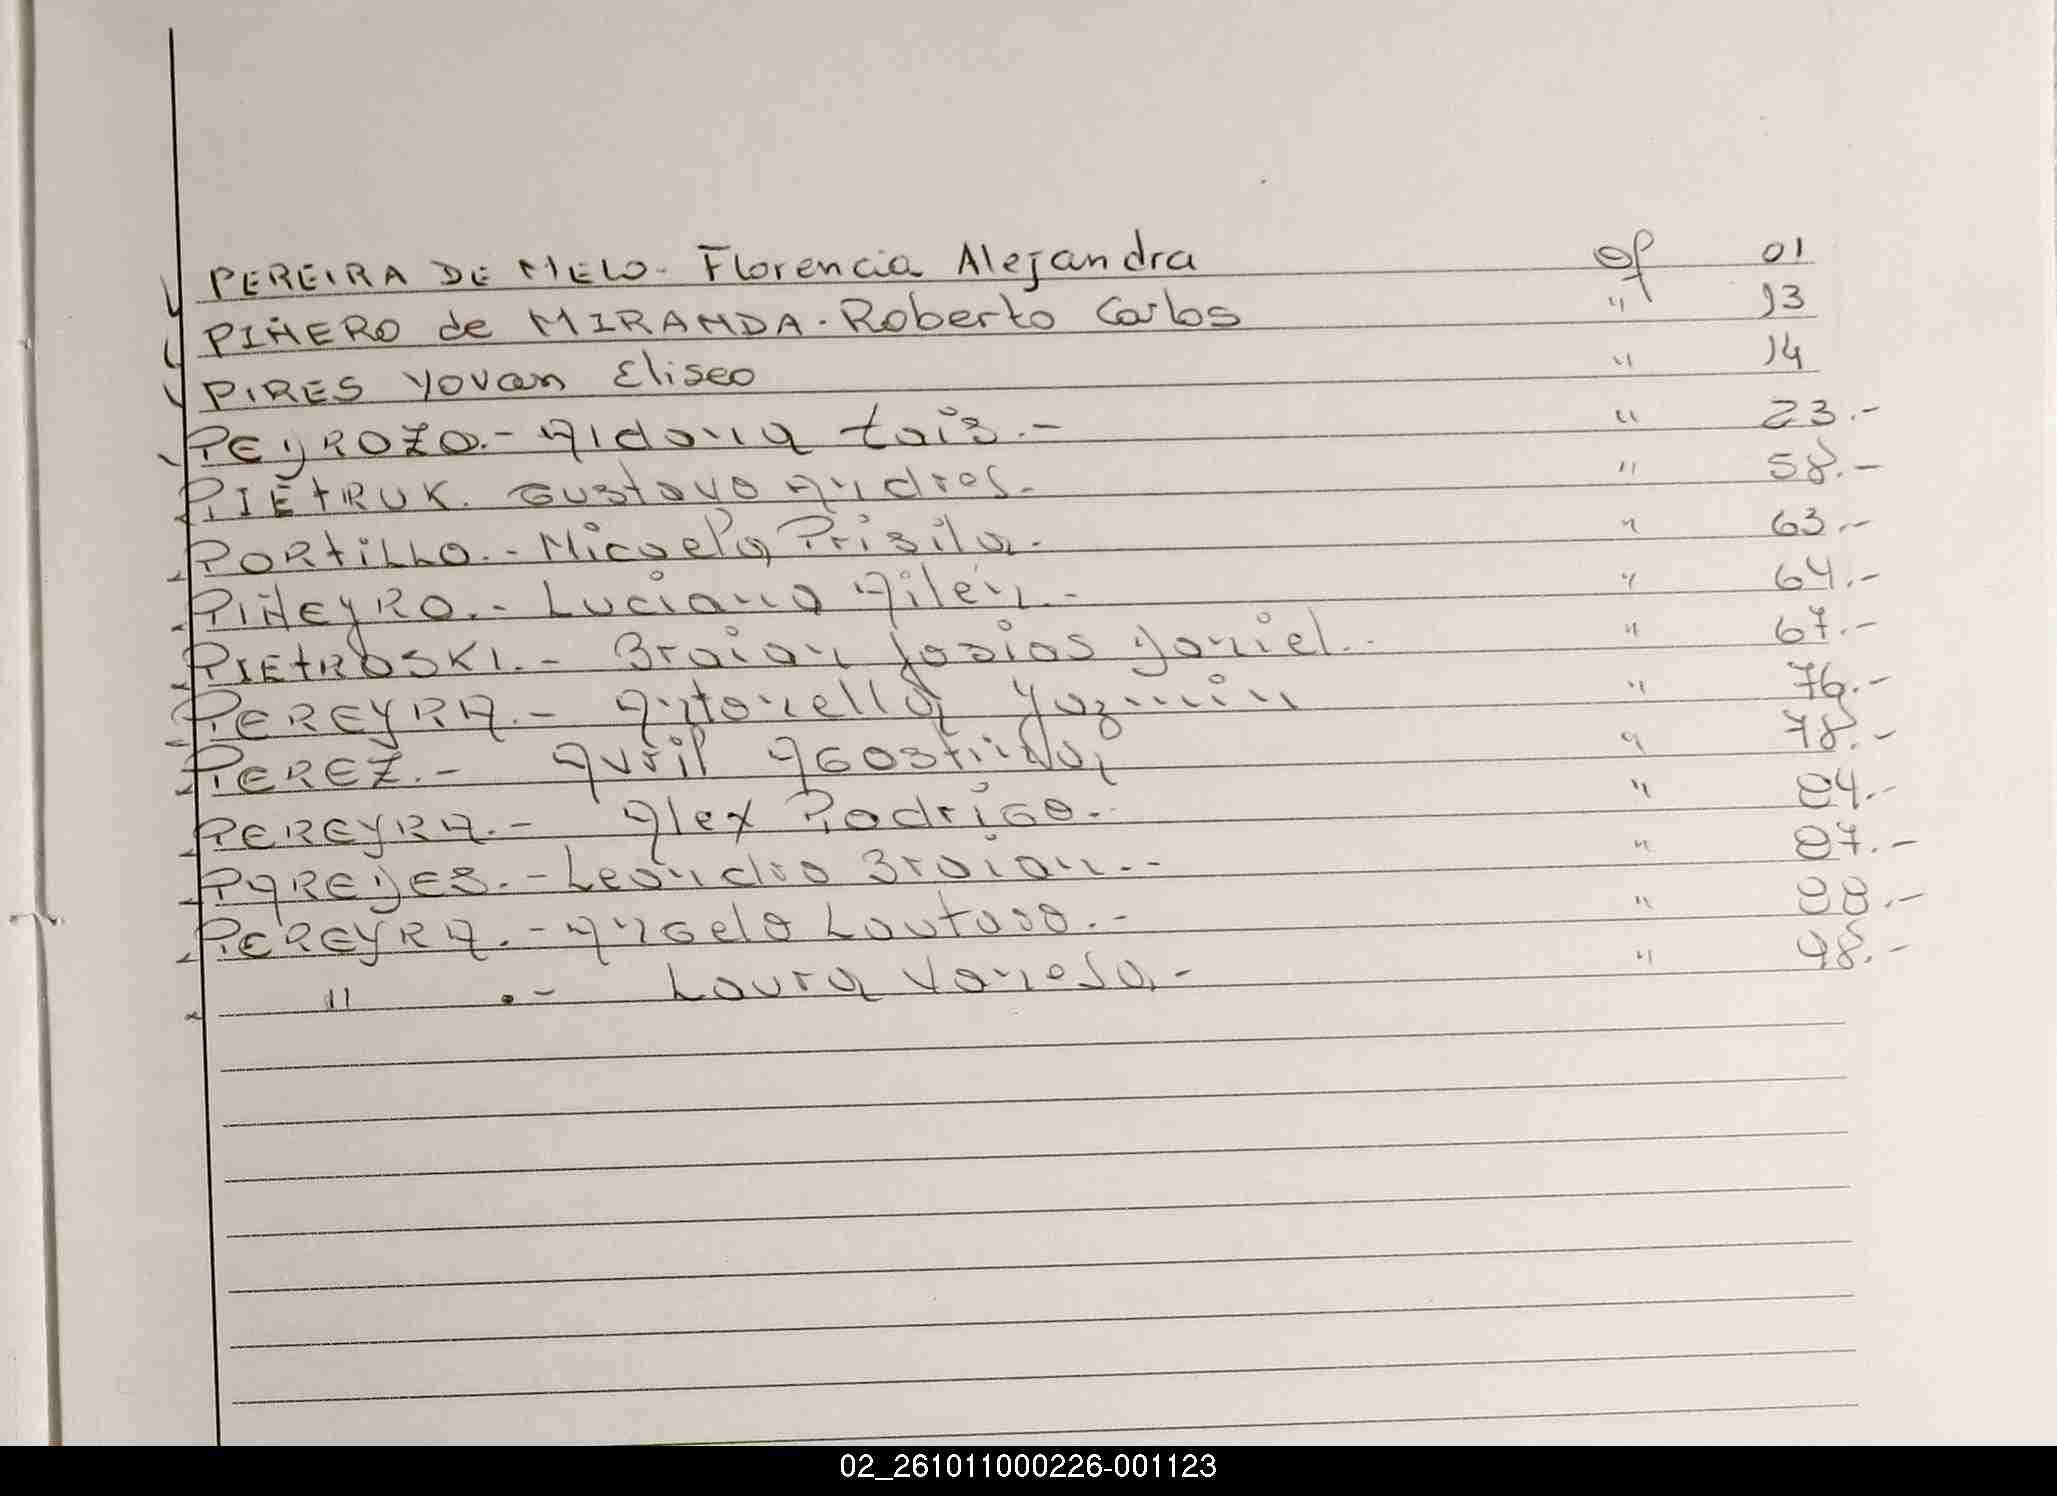 PEREIRA DE MELO- Florencia Alejandra of 01
PIÑERO de MIRANDA. Roberto Carlos " 13
PIRES Yovan Eliseo " 14
PEYROZO.- Aldana tais.- " 23.-
PIETRUK. Gustavo Andres. " 58.-
PORTILLO.- Micaela Prisila. " 63.-
PIÑEYRO.- Luciana Ailén.- " 64.-
PIETROSKI.- Braian Josias Yoniel.- " 67.-
PEREYRA.- Antonella Yazmin " 76.-
PEREZ.- Avril Agostina " 78.-
PEREYRA.- Alex Rodrigo.- " 84.-
PAREYES.- Leandro Braian.- " 87.-
PEREYRA.- Angelo Lautaro.- " 88.-
" .- Laura Vanesa.- " 98.-
02_261011000226-001123